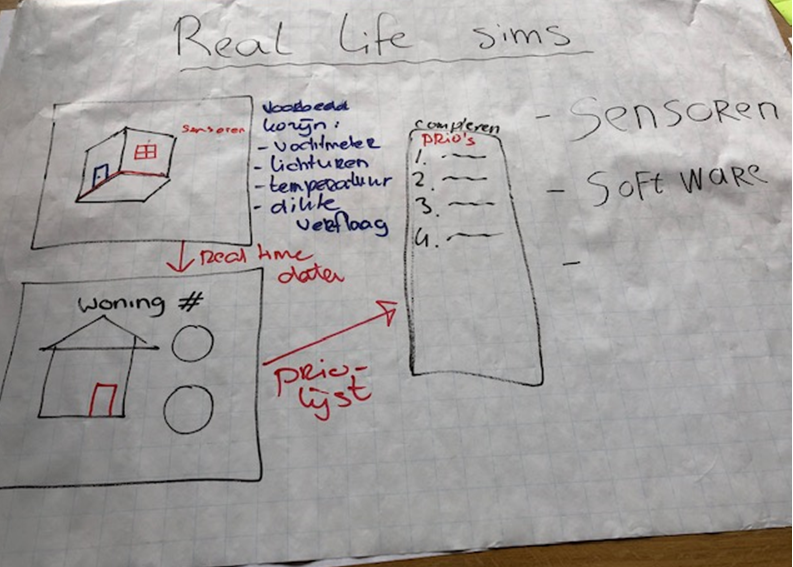 Real Life sims
sensoren
Voorbeeld
kozijn:
- vochtmeter
- lichturen
- temperatuur
- dikte
verflaag
Real time
data
woning #
prio-
lijst
complexen
PRio's
1.
2.
3.
4.
- SENSOREN
- SOFTWARE
-